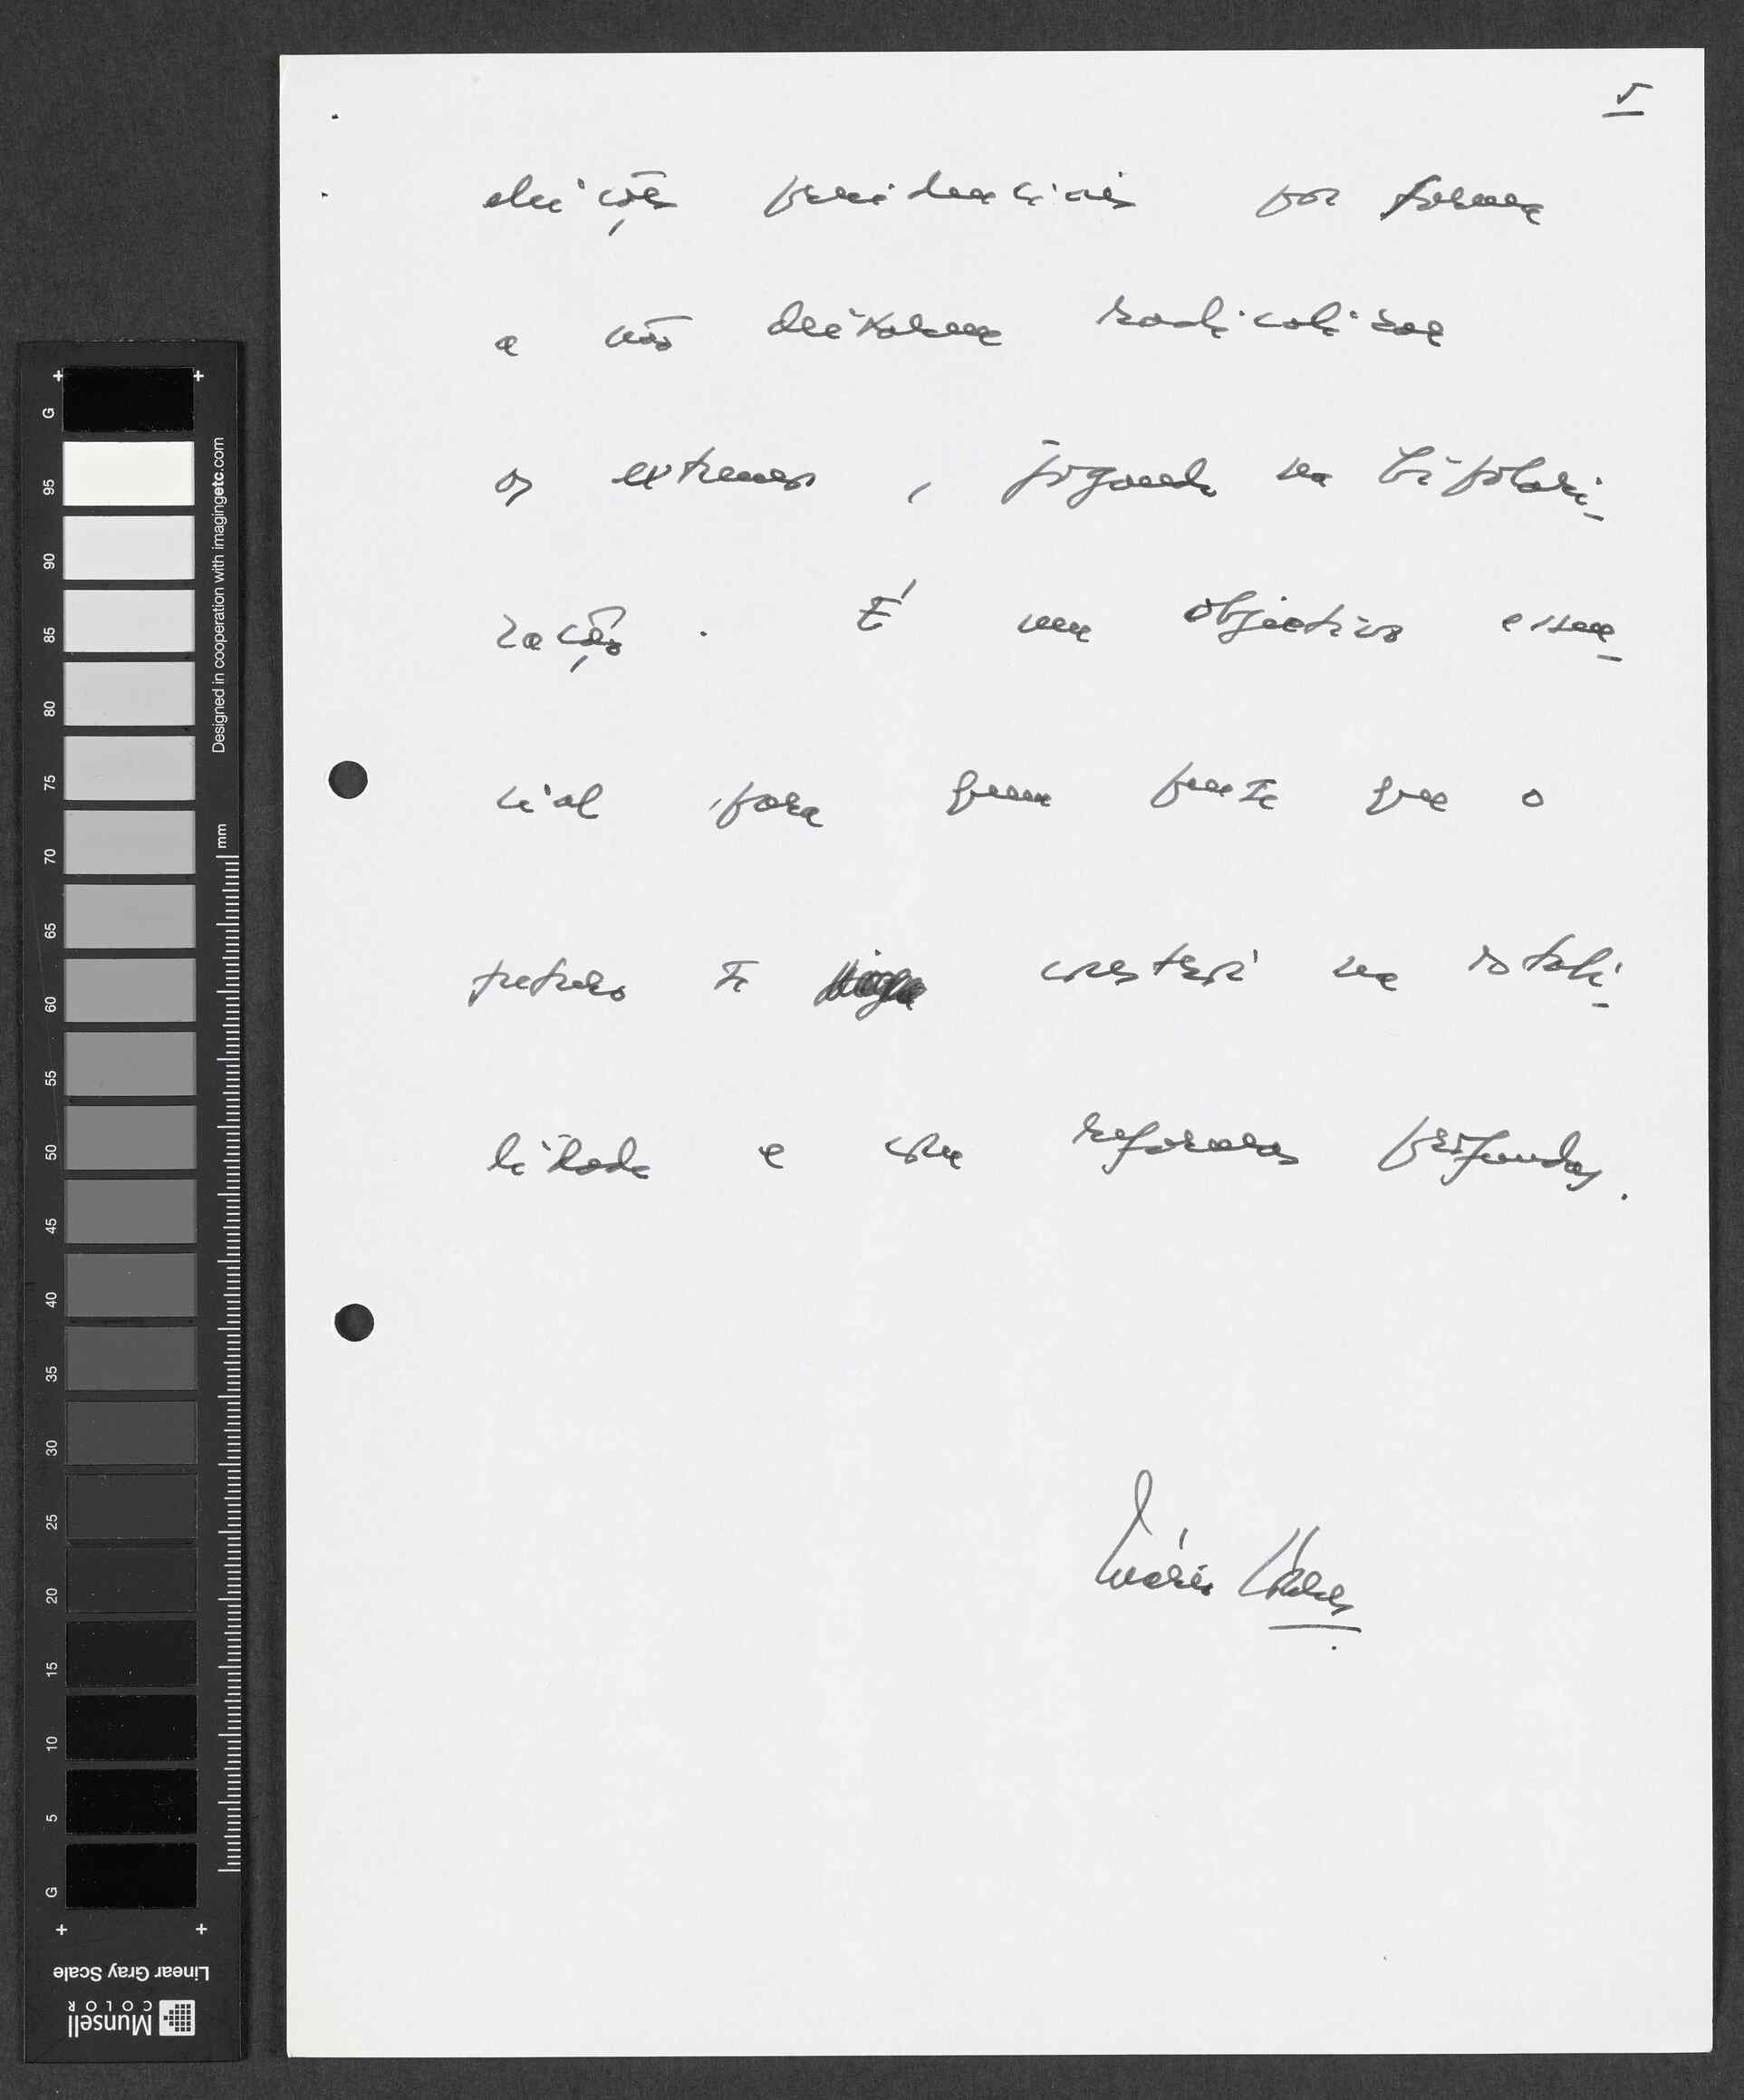 5
eleições presidenciais por forma
a não deixarem radicalizar
os extremos, jogando na bipolari-
zação. É um objectivo essen-
cial para quem pensa que o
futuro se constrói na estabi-
lidade e com reformas profundas.
Mário Soares
G
95
90
85
80
75
70
65
60
55
50
45
40
35
30
25
20
15
10
5
G
Designed in cooperation with imagingetc.com
mm
Linear Gray Scale
Munsell
COLOR